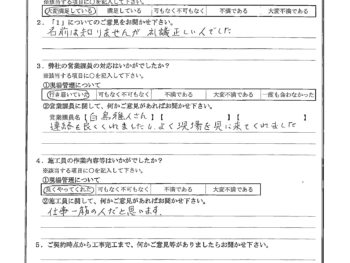 ※該当する項目に○を記入して下さい。
大変満足している 満足している 可もなく不可もなく 不満である 大変不満である
2．「1」についてのご意見をお聞かせ下さい。
名前は知りませんが お礒正しい人でした
3．弊社の営業課員の対応はいかがでしたか？
※該当する項目に○を記入して下さい。
①現場管理について
行き届いていた 可もなく不可もなく 不満である 大変不満である 一度も会わなかった
②営業課員に関して、何かご意見があればお聞かせ下さい。
営業課員名【白鳥雅人さん】【 】【 】
連絡も良くくれましたし、よく現場を見に来てくれました
4．施工員の作業内容等はいかがでしたか？
※該当する項目に○を記入して下さい。
①現場管理について
良くやってくれた 可もなく不可もなく 不満である 大変不満である
②施工員に関して、何かご意見があればお聞かせ下さい。
仕事一筋の人だと思います。
5．ご契約時点から工事完工まで、何かご意見等がありましたらお聞かせ下さい。